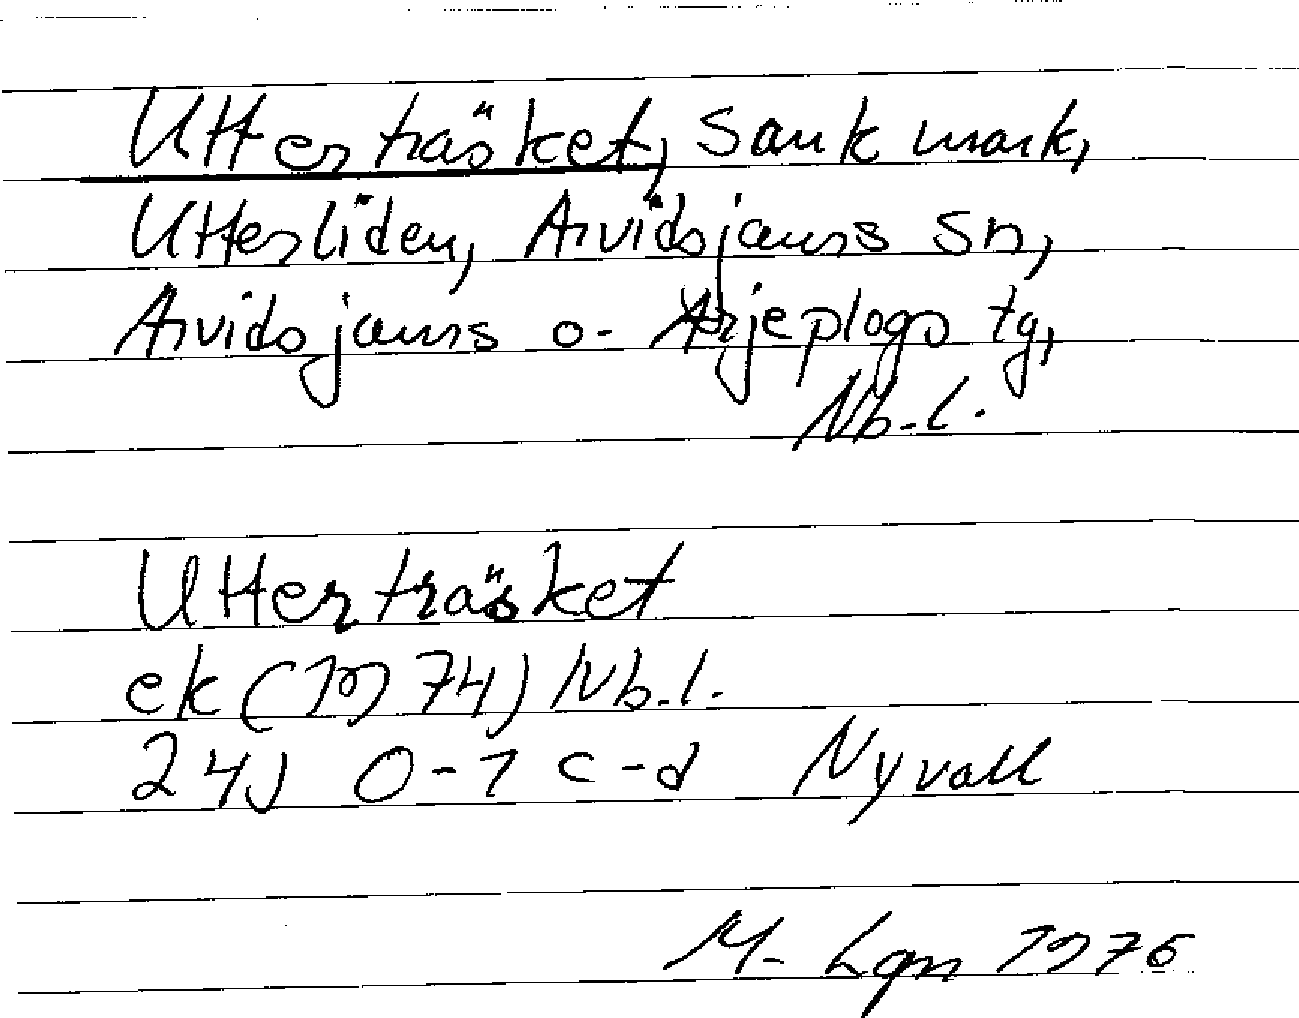 Utterträsket, sank mark,
Utterliden, Arvidsjaurs sn,
Arvidsjaurs o. Arjeplogs tg,
Nb. l.
Utterträsket
ek (1974) Nb. l.
24J 0-1 c-d Nyvall
M. Lgn 1976